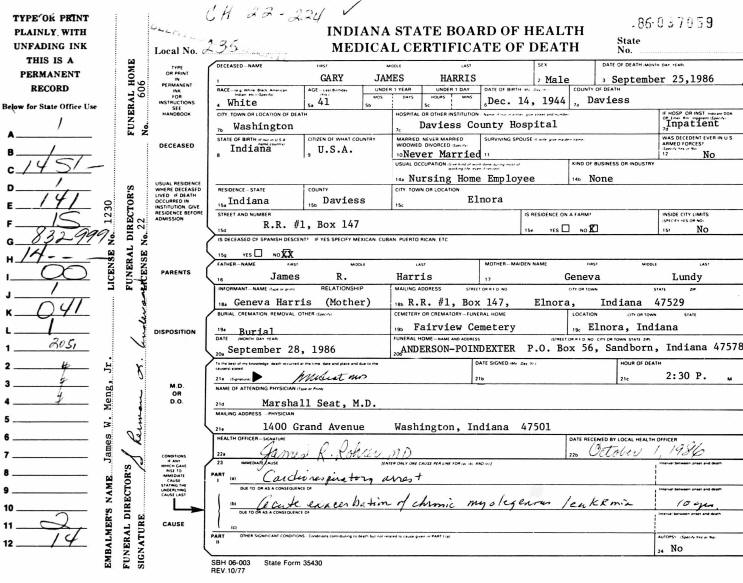 CH 22-224 ✓
TYPE OR PRINT
PLAINLY, WITH
UNFADING INK
THIS IS A
PERMANENT
RECORD
Below for State Office Use
A 1
B 1
C 1451-
D 1
E 141
F 15
G 832-999
H 14--
I 00
J 1
K 041
L 1
1 2051
2
3
4
5
6
7
8
9
10
11 2
12 14
EMBALMER'S NAME James W. Meng, Jr. LICENSE No. 1230
FUNERAL DIRECTOR'S SIGNATURE
FUNERAL DIRECTOR'S LICENSE No. 22
FUNERAL HOME No. 606
INDIANA STATE BOARD OF HEALTH
MEDICAL CERTIFICATE OF DEATH
Local No. 235
State No. 86-037059
TYPE
OR PRINT
IN
PERMANENT
INK
FOR
INSTRUCTIONS
SEE
HANDBOOK
DECEASED
USUAL RESIDENCE
WHERE DECEASED
LIVED IF DEATH
OCCURRED IN
INSTITUTION GIVE
RESIDENCE BEFORE
ADMISSION
PARENTS
DISPOSITION
M.D.
OR
D.O.
CONDITIONS
IF ANY
WHICH GAVE
RISE TO
IMMEDIATE
CAUSE
STATING THE
UNDERLYING
CAUSE LAST
CAUSE
DECEASED—NAME FIRST MIDDLE LAST SEX DATE OF DEATH (MONTH DAY YEAR)
1 GARY JAMES HARRIS 2 Male 3 September 25,1986
RACE AGE—Last Birthday UNDER 1 YEAR UNDER 1 DAY DATE OF BIRTH COUNTY OF DEATH
MOS. DAYS HOURS MINS
4 White 5a 41 5b 5c 6 Dec. 14, 1944 7a Daviess
CITY TOWN OR LOCATION OF DEATH HOSPITAL OR OTHER INSTITUTION
7b Washington 7c Daviess County Hospital 7d Inpatient
STATE OF BIRTH CITIZEN OF WHAT COUNTRY MARRIED NEVER MARRIED WIDOWED DIVORCED SURVIVING SPOUSE WAS DECEDENT EVER IN U.S. ARMED FORCES?
8 Indiana 9 U.S.A. 10 Never Married 11 12 No
USUAL OCCUPATION KIND OF BUSINESS OR INDUSTRY
14a Nursing Home Employee 14b None
RESIDENCE—STATE COUNTY CITY TOWN OR LOCATION
15a Indiana 15b Daviess 15c Elnora
STREET AND NUMBER IS RESIDENCE ON A FARM? INSIDE CITY LIMITS
15d R.R. #1, Box 147 15e YES NO X 15f No
IS DECEASED OF SPANISH DESCENT? IF YES SPECIFY MEXICAN, CUBAN, PUERTO RICAN, ETC
15g YES NO XX
FATHER—NAME FIRST MIDDLE LAST MOTHER—MAIDEN NAME FIRST MIDDLE LAST
16 James R. Harris 17 Geneva Lundy
INFORMANT—NAME (Type or print) RELATIONSHIP MAILING ADDRESS STREET OR R.F.D. NO CITY OR TOWN STATE ZIP
18a Geneva Harris (Mother) 18b R.R. #1, Box 147, Elnora, Indiana 47529
BURIAL CREMATION REMOVAL OTHER (Specify) CEMETERY OR CREMATORY—FUNERAL HOME LOCATION CITY OR TOWN STATE
19a Burial 19b Fairview Cemetery 19c Elnora, Indiana
DATE (MONTH DAY YEAR) FUNERAL HOME—NAME AND ADDRESS (STREET OR R.F.D. NO CITY OR TOWN STATE ZIP)
20a September 28, 1986 20b ANDERSON-POINDEXTER P.O. Box 56, Sandborn, Indiana 47578
To the best of my knowledge death occurred at the time date and place and due to the cause(s) stated DATE SIGNED (Mo Day Yr) HOUR OF DEATH
21a (Signature) 21b 21c 2:30 P. M
NAME OF ATTENDING PHYSICIAN (Type or Print)
21d Marshall Seat, M.D.
MAILING ADDRESS—PHYSICIAN
21e 1400 Grand Avenue Washington, Indiana 47501
HEALTH OFFICER—SIGNATURE DATE RECEIVED BY LOCAL HEALTH OFFICER
22a James R. Rohrer MD 22b October 1, 1986
23 IMMEDIATE CAUSE [ENTER ONLY ONE CAUSE PER LINE FOR (a) (b) AND (c)] Interval between onset and death
PART I (a) Cardiorespiratory arrest
DUE TO OR AS A CONSEQUENCE OF Interval between onset and death
(b) Acute exacerbation of chronic myelogenous leukemia 10 yrs.
DUE TO OR AS A CONSEQUENCE OF Interval between onset and death
(c)
PART II OTHER SIGNIFICANT CONDITIONS Conditions contributing to death but not related to cause given in PART I (a) AUTOPSY (Specify Yes or No)
24 No
SBH 06-003 State Form 35430
REV. 10/77